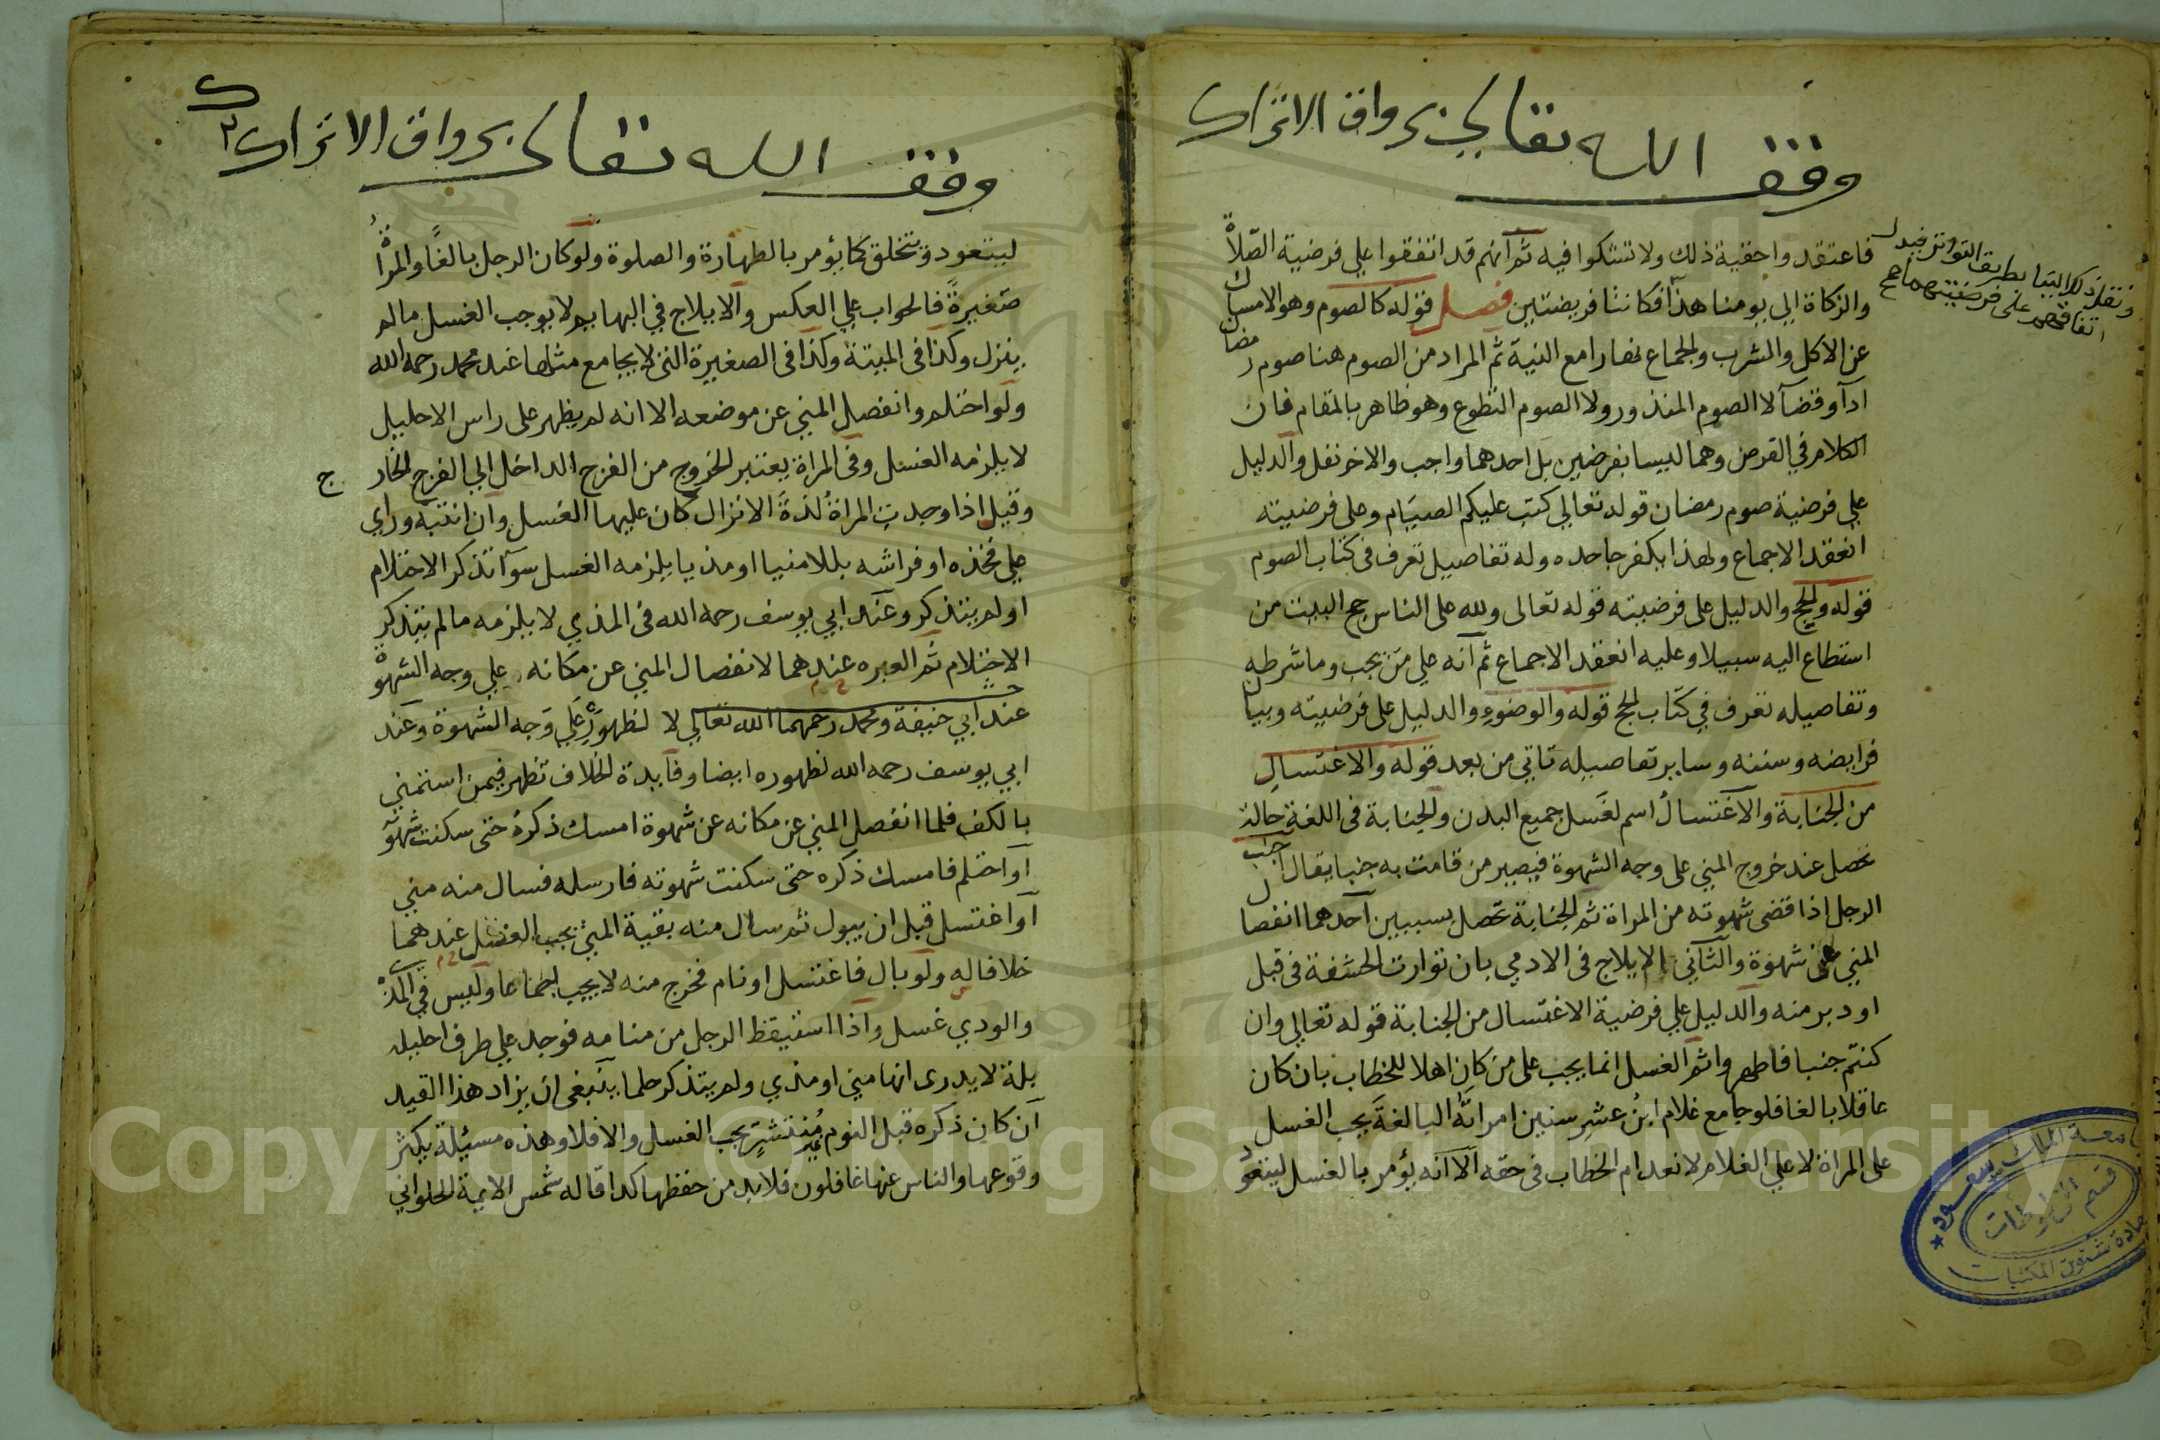 وقف الله تعالى برواق الاتراك
فاعتقدوا حقية ذلك ولا تشكوا فيه ثم انهم قد اتفقوا على فرضية الصلاة
والزكاة الى يومنا هذا فكانتا فريضتين فصل قوله كالصوم وهو الامساك
عن الاكل والشرب والجماع نهارا مع النية ثم المراد من الصوم هنا صوم رمضان
ادآ وقضآ لا الصوم المنذور ولا الصوم التطوع وهو ظاهر بالمقام فان
الكلام في الفرض وهما ليسا بفرضين بل احدهما واجب والاخر نفل والدليل
على فرضية صوم رمضان قوله تعالى كتب عليكم الصيام وعلى فرضيته
انعقد الاجماع ولهذا يكفر جاحده وله تفاصيل تعرف في كتاب الصوم
قوله والحج والدليل على فرضيته قوله تعالى ولله على الناس حج البيت من
استطاع اليه سبيلا وعليه انعقد الاجماع ثم انه على من يجب وما شرطه
وتفاصيله تعرف في كتاب الحج قوله والوضوء والدليل على فرضيته وبيان
فرايضه وسننه وساير تفاصيله تاتي من بعد قوله والاغتسال
من الجنابة والاغتسال اسم لغسل جميع البدن والجنابة في اللغة حالة
تحصل عند خروج المني على وجه الشهوة فيصير من قامت به جنبا يقال اجنب
الرجل اذا قضى شهوته من المراة ثم الجنابة تحصل بسببين احدهما انفصال
المني عن شهوة والثاني الايلاج في الادمي بان توارت الحشفة في قبل
او دبر منه والدليل على فرضية الاغتسال من الجنابة قوله تعالى وان
كنتم جنبا فاطهروا ثم الغسل انما يجب على من كان اهلا للخطاب بان كان
عاقلا بالغا فلو جامع غلام ابن عشر سنين امراته البالغة يجب الغسل
على المراة لا على الغلام لانعدام الخطاب في حقه الا انه يؤمر بالغسل ليتعود
اتفاقهم على فرضيتهما صح
جامعة الملك سعود
قسم المخطوطات
عمادة شئون المكتبات
وقف الله تعالى برواق الاتراك
ليتعود وتخلق كما يؤمر بالطهارة والصلوة ولو كان الرجل بالغا والمراة
صغيرة فالجواب على العكس والايلاج في البهايم لا يوجب الغسل ما لم
ينزل وكذا في الميتة وكذا في الصغيرة التي لا يجامع مثلها عند محمد رحمه الله
ولو احتلم وانفصل المني عن موضعه الا انه لم يظهر على راس الاحليل
لا يلزمه الغسل وفي المراة يعتبر الخروج من الفرج الداخل الى الفرج الخارج
وقيل اذا وجدت المراة لذة الانزال كان عليها الغسل وان انتبه وراى
على فخذه او فراشه بللا منيا او مذيا يلزمه الغسل سوآ تذكر الاحتلام
او لم يتذكر وعند ابي يوسف رحمه الله في المذي لا يلزمه ما لم يتذكر
الاحتلام ثم العبره عندهما لانفصال المني عن مكانه على وجه الشهوة
عند ابي حنيفة ومحمد رحمهما الله تعالى لا لظهوره على وجه الشهوة وعند
ابي يوسف رحمه الله لظهوره ايضا وفايدة الخلاف تظهر فيمن استمنى
بالكف فلما انفصل المني عن مكانه عن شهوة امسك ذكره حتى سكنت شهوته
او احتلم فامسك ذكره حتى سكنت شهوته فارسله فسال منه مني
او اغتسل قبل ان يبول ثم سال منه بقية المني يجب الغسل عندهما
خلافا له ولو بال فاغتسل او نام فخرج منه لا يجب اجماعا وليس في المذي
والودي غسل واذا استيقظ الرجل من منامه فوجد على طرف احليله
بلة لا يدرى انها مني او مذي ولم يتذكر حلما ينبغي ان يزاد هذا القيد
ان كان ذكره قبل النوم غير منتشر يجب الغسل والا فلا وهذه مسئلة يكثر
وقوعها والناس عنها غافلون فلابد من حفظها كذا قاله شمس الايمة الحلواني
Copyright © King Saud University
1957